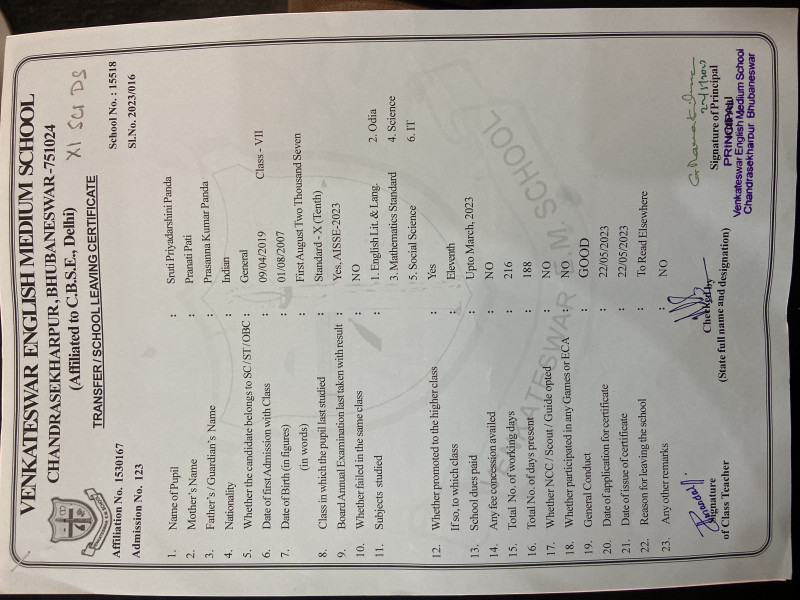 VENKATESWAR ENGLISH MEDIUM SCHOOL
CHANDRASEKHARPUR, BHUBANESWAR-751024
(Affiliated to C.B.S.E., Delhi)
XI SCI DS
TRANSFER/SCHOOL LEAVING CERTIFICATE
Affiliation No. 1530167 School No. : 15518
Admission No. 123 Sl.No. 2023/016
1. Name of Pupil : Sruti Priyadarshini Panda
2. Mother's Name : Pranati Pati
3. Father's / Guardian's Name : Prasanna Kumar Panda
4. Nationality : Indian
5. Whether the candidate belongs to SC/ST/OBC : General
6. Date of first Admission with Class : 09/04/2019 Class - VII
7. Date of Birth (in figures) : 01/08/2007
(in words) First August Two Thousand Seven
8. Class in which the pupil last studied : Standard - X (Tenth)
9. Board Annual Examination last taken with result : Yes, AISSE-2023
10. Whether failed in the same class : NO
11. Subjects studied : 1. English Lit. & Lang. 2. Odia
3. Mathematics Standard 4. Science
5. Social Science 6. IT
12. Whether promoted to the higher class : Yes
If so, to which class : Eleventh
13. School dues paid : Upto March, 2023
14. Any fee concession availed : NO
15. Total No. of working days : 216
16. Total No. of days present : 188
17. Whether NCC / Scout / Guide opted : NO
18. Whether participated in any Games or ECA : NO
19. General Conduct : GOOD
20. Date of application for certificate : 22/05/2023
21. Date of issue of certificate : 22/05/2023
22. Reason for leaving the school : To Read Elsewhere
23. Any other remarks : NO
Signature
of Class Teacher
Checked by
(State full name and designation)
Signature of Principal
PRINCIPAL
Venkateswar English Medium School
Chandrasekharpur Bhubaneswar